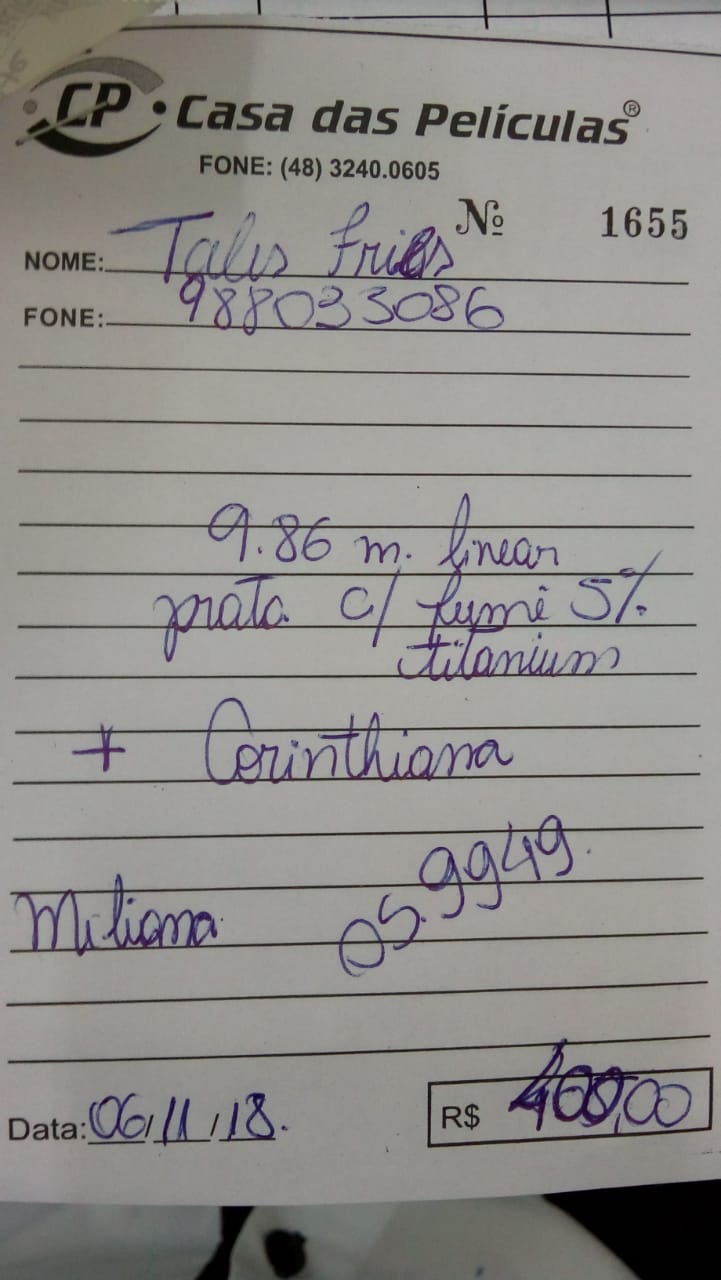 CP • Casa das Películas®
FONE: (48) 3240.0605
Nº 1655
NOME: Talis Fries
FONE: 988033086
9.86 m. linear
prata c/ fumê 5%
titanium
+ Corinthiana
Miliana OS. 9949.
Data: 06/11/18. R$ 400,00